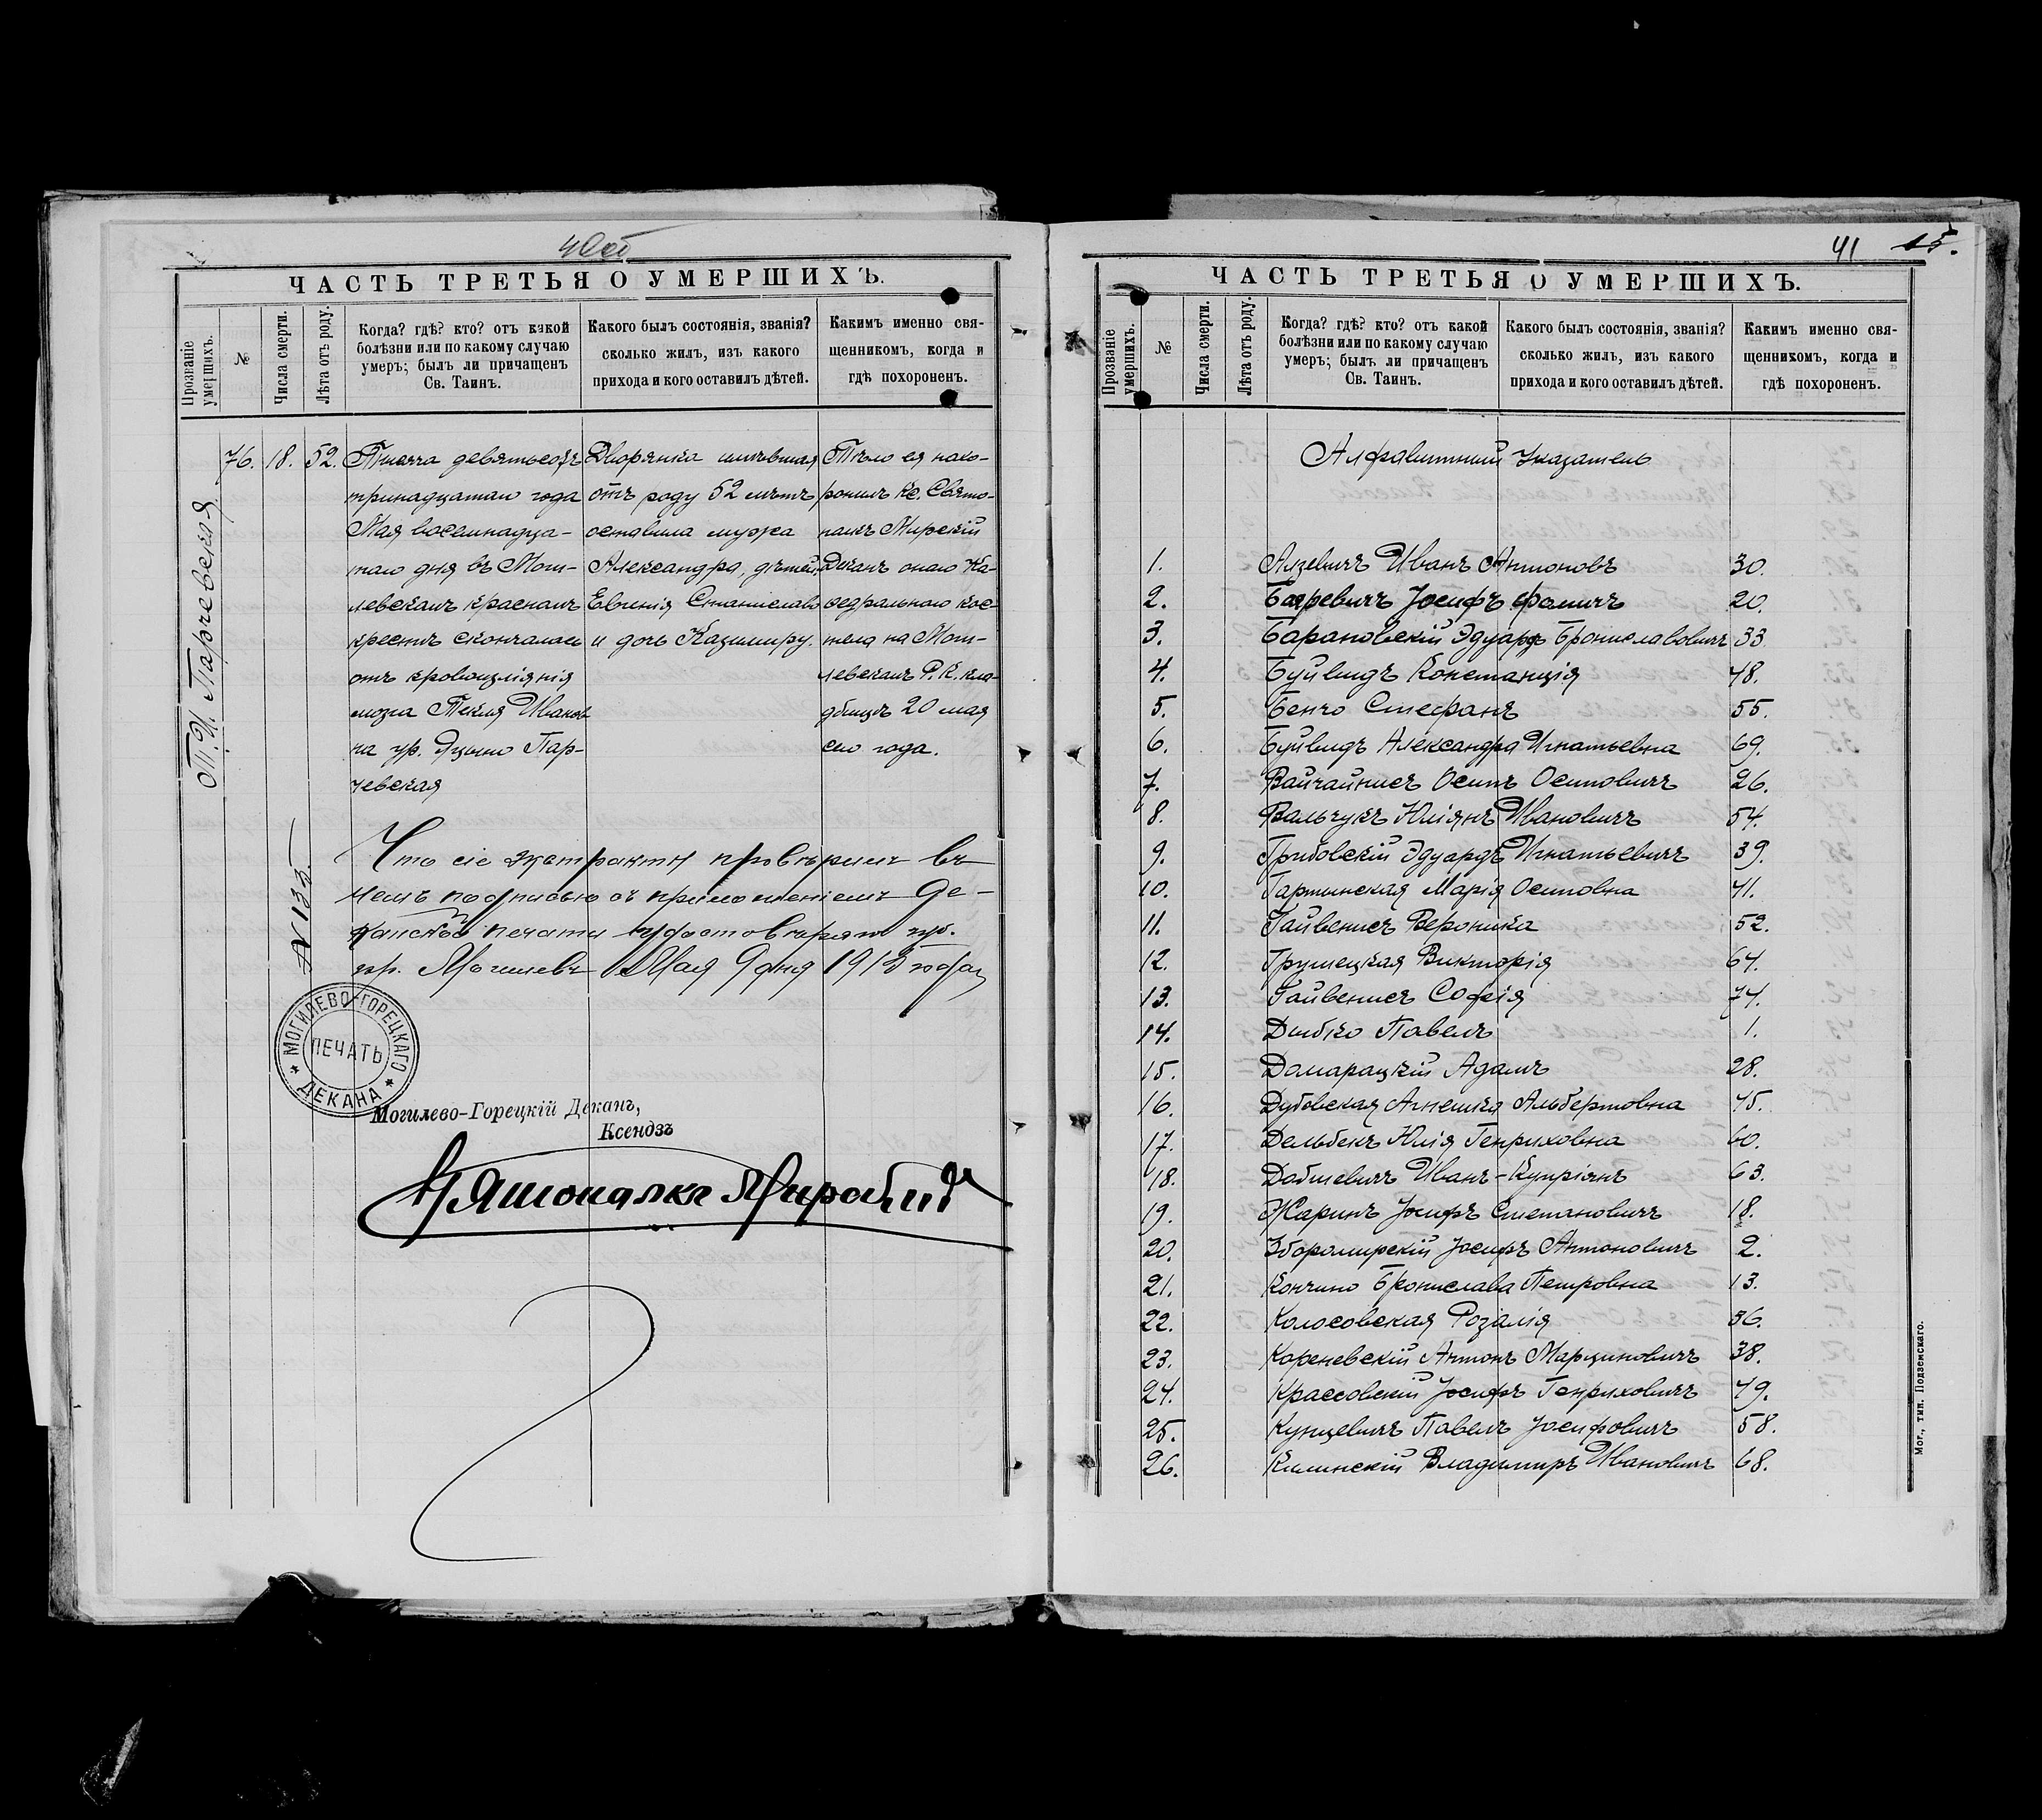 40об
ЧАСТЬ ТРЕТЬЯ О УМЕРШИХЪ.
Прозваніе умершихъ.
№
Числа смерти.
Лѣта отъ роду.
Когда? гдѣ? кто? отъ какой
болѣзни или по какому случаю
умеръ; былъ ли причащенъ
Св. Таинъ.
Какого былъ состоянія, званія?
сколько жилъ, изъ какого
прихода и кого оставилъ дѣтей.
Каким­ъ именно свя-
щенникомъ, когда и
гдѣ похороненъ.
Т. И. Парчевская
76. 18. 52.
Тысяча девятьсотъ
тринадцатаго года
Мая восемнадца-
таго дня въ Моги-
левскомъ красномъ
крестѣ скончалась
отъ кровоизліянія
мозга Текля Иванов
на ур. Яцыно Пар-
чевская
Дворянка имѣвшая
отъ роду 52 лѣтъ
оставила мужа
Александра, дѣтей:
Евгенія Станислава
и дочь Казимиру.
Тѣло ея похо-
ронилъ Кс. Свято-
полкъ Мирскій
Деканъ оного Ка-
ѳедральнаго кос-
тела на Моги-
левскомъ Р. К. кла-
дбищѣ 20 мая
сего года.
Что сіе экстрактъ провѣренъ въ
чемъ подписью съ приложеніемъ Де-
канской печати удостовѣряю
гор. Могилевъ Мая 9 дня 191 года
N 133
МОГИЛЕВО-ГОРЕЦКАГО ДЕКАНА
ПЕЧАТЬ
Могилево-Горецкій Деканъ,
Ксендзъ
41 15.
ЧАСТЬ ТРЕТЬЯ О УМЕРШИХЪ.
Прозваніе умершихъ.
№
Числа смерти.
Лѣта отъ роду.
Когда? гдѣ? кто? отъ какой
болѣзни или по какому случаю
умеръ; былъ ли причащенъ
Св. Таинъ.
Какого былъ состоянія, званія?
сколько жилъ, изъ какого
прихода и кого оставилъ дѣтей.
Какимъ именно свя-
щенникомъ, когда и
гдѣ похороненъ.
Алфавитный Указатель
1. Алзевичъ Иванъ Антоновъ 30.
2. Іосифъ Фомичъ 20.
3. Барановскій Эдуардъ Брониславовичъ 33.
4. Буйвидъ Констанція 48.
5. Бенчо Стефанъ 55.
6. Буйвидъ Александра Игнатьевна 69.
7. Вайчайнисъ Осипъ Осиповичъ 26.
8. Вальчукъ Юліянъ Ивановичъ 54.
9. Грибовскій Эдуардъ Игнатьевичъ 39.
10. Гартинская Марія Осиповна 41.
11. Гайвенисъ Вероника 52.
12. Грушецкая Викторія 64.
13. Гайвенисъ Софія 74.
14. Дыбко Павелъ 1.
15. Домарацкій Адамъ 28.
16. Дубовская Агнешка Альбертовна 45.
17. Дельбекъ Юлія Генриховна 60.
18. Добшевичъ Иванъ-Купріянъ 63.
19. Жаринъ Іосифъ Степановичъ 18.
20. Зборомирскій Іосифъ Антоновичъ 2.
21. Кончино Бронислава Петровна 13.
22. Колосовская Розалія 36.
23. Кореневскій Антонъ Марциновичъ 38.
24. Крассовскій Іосифъ Генриховичъ 49.
25. Кунцевичъ Павелъ Іосифовичъ 58.
26. Килинскій Владимиръ Ивановичъ 68.
Мог., тип. Подземскаго.